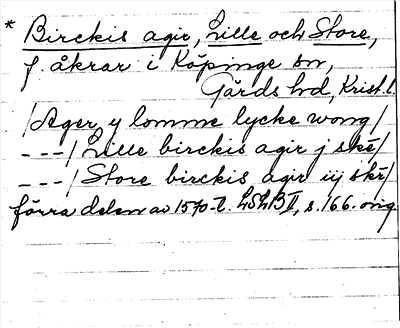 * Birckis agir, Lille och Store,
f. åkrar i Köpinge sn,
Gärds hd, Krist. l.
/Ager y lomme lycke wong/
---/Lille birckis agir j skē/
---/Store birckis agir iij skē/
förra delen av 1570-t. LSLB II, s. 166. orig.